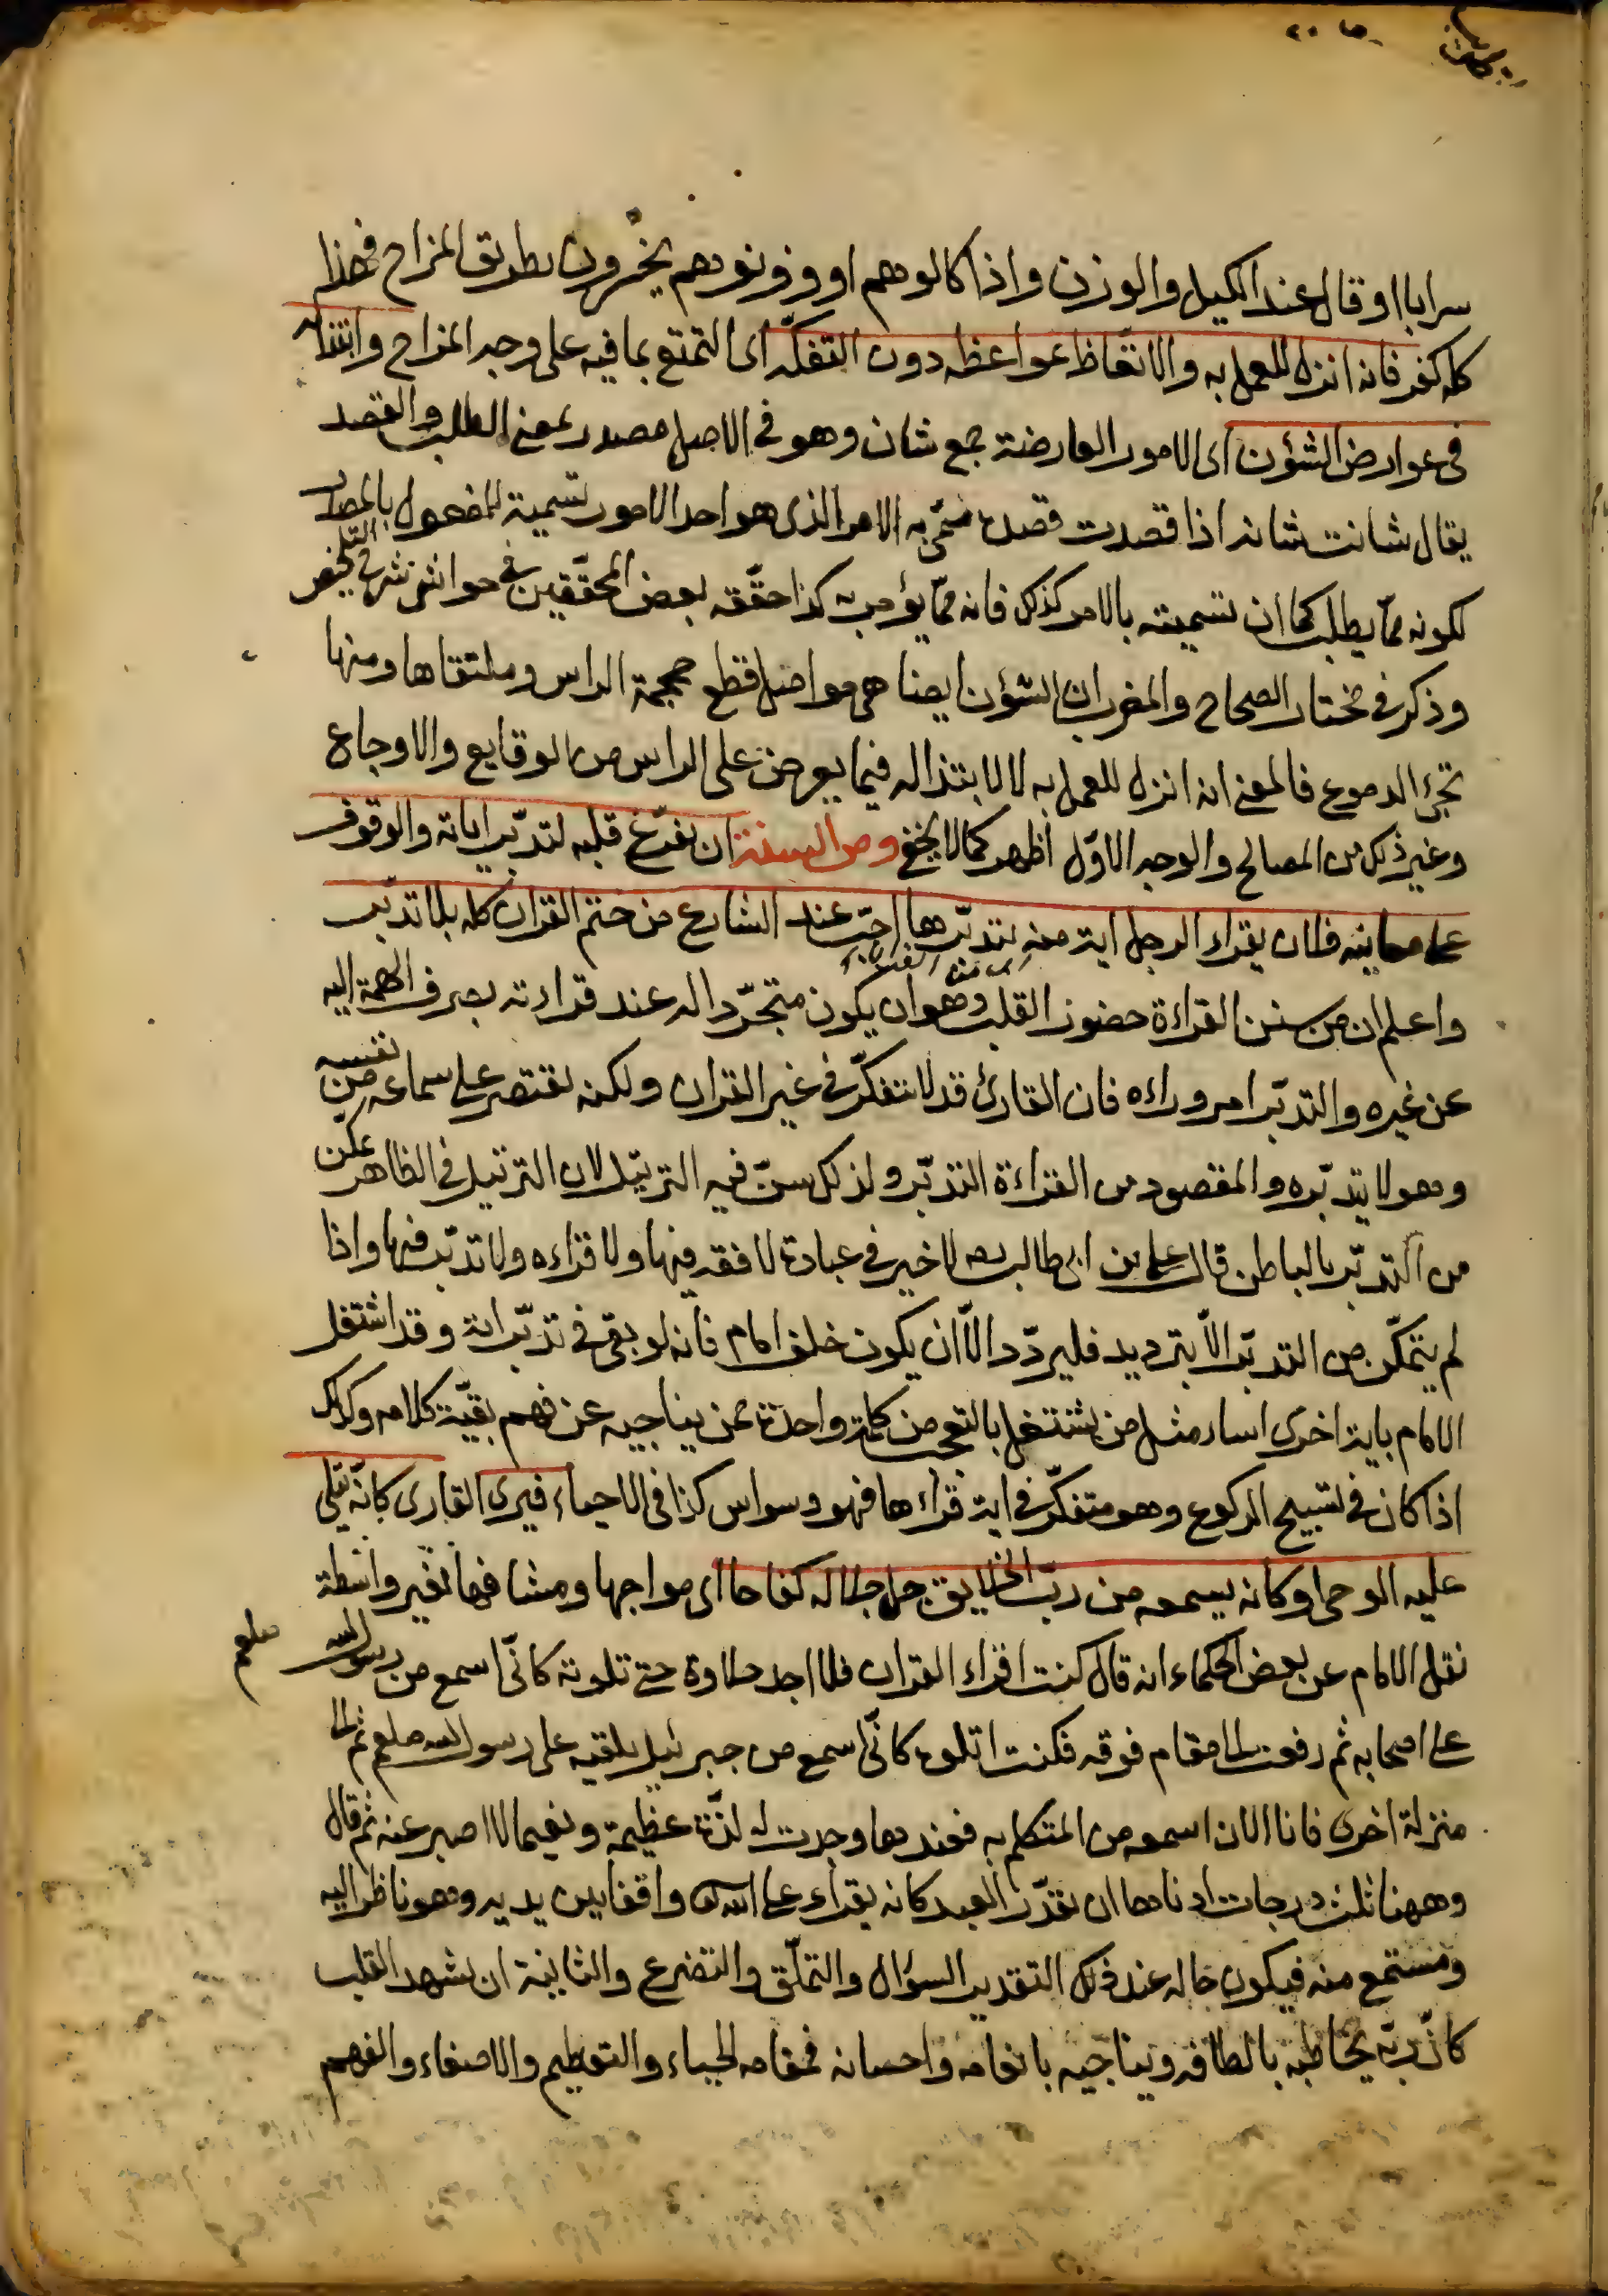 سرابا او قال عند الكيل والوزن واذا كالوهم او وزنوهم يخسرون بطريق المزاح فهذا
كله كفر فانه انزله للعمل به والاتعاظ بمواعظه دون التفكه اى التمتع بما فيه على وجه المزاح وابتذاله
فى عوارض الشؤن اى الامور العارضة جمع شان وهو فى الاصل مصدر بمعنى الطلب والقصد
يقال شانت شانه اذا قصدت قصده سمى به الامر الذى هو احد الامور تسمية للمفعول بالمصدر
لكونه مما يطلب كما ان تسميته بالامر كذلك فانه مما يؤمر به كذا حققه بعض المحققين فى حواشى شرح التلخيص
وذكر فى مختار الصحاح والمغرب ان الشؤن ايضا هى مواصل قطع جمجمة الراس وملتقاها ومنها
تجرى الدموع فالمعنى انه انزله للعمل به لا لابتذاله فيما يعرض على الراس من الوقايع والاوجاع
وغير ذلك من المصالح والوجه الاول اظهر كما لا يخفى ومن السنة ان يفرغ قلبه لتدبر اياته والوقوف
على معانيه فلان يقراء الرجل اية منه يتدبرها احب عند الشارع من ختم القران كله بلا تدبر
اى من القران
واعلم ان من سنن القراءة حضور القلب وهو ان يكون متجردا له عند قراءته بصرف الهمة اليه
عن غيره والتدبر امر وراءه فان القارئ قد لا يتفكر فى غير القران ولكنه يقتصر على سماعه من نفسه
وهو لا يتدبره والمقصود من القراءة التدبر ولذلك سن فيه الترتيل لان الترتيل فى الظاهر يمكن
من التدبر بالباطن قال على بن ابى طالب لا خير فى عبادة لا فقه فيها ولا قراءه ولا تدبر فيها واذا
لم يتمكن من التدبر الا بترديد فليردد الا ان يكون خلف امام فانه لو بقى فى تدبر اية وقد اشتغل
الامام باية اخرى اساء مثل من يشتغل بالتعجب من كلمة واحدة ممن يناجيه عن فهم بقية كلامه وكذلك
اذا كان فى تسبيح الركوع وهو متفكر فى اية قراءها فهو وسواس كذا فى الاحياء فيرى القارى كانه يتلى
عليه الوحى او كانه يسمعه من رب الخلايق جل جلاله كفاحا اى مواجها ومشافها بغير واسطة
نقل الامام عن بعض الحكماء انه قال كنت اقراء القران فلا اجد حلاوة حتى تلوته كانى اسمع من رسول الله صلعم
على اصحابه ثم رفعت الى مقام فوقه فكنت اتلوه كانى اسمع من جبرئيل يلقيه على رسول الله صلعم ثم الى
منزلة اخرى فانا الان اسمعه من المتكلم به فعندها وجدت له لذة عظيمة ونعيما لا اصبر عنه ثم قال
وههنا ثلث درجات ادناها ان يقدر العبد كانه يقراء على الله واقفا بين يديه وهو ناظر اليه
ومستمع منه فيكون حاله عند ذلك التقدير السؤال والتملق والتضرع والثانية ان يشهد القلب
كان ربه يخاطبه بالطافه ويناجيه بانعامه واحسانه فمقامه الحياء والتعظيم والاصغاء والفهم